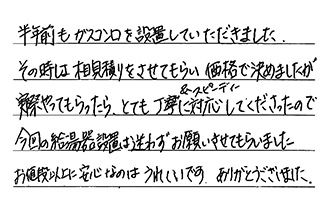 半年前もガスコンロを設置していただきました。
その時は相見積りをさせてもらい価格で決めましたが
実際やってもらったら、とても丁寧&スピーディーに対応してくださったので
今回の給湯器設置は迷わずお願いさせてもらいました
お値段以上に安心なのはうれしいです。ありがとうございました。